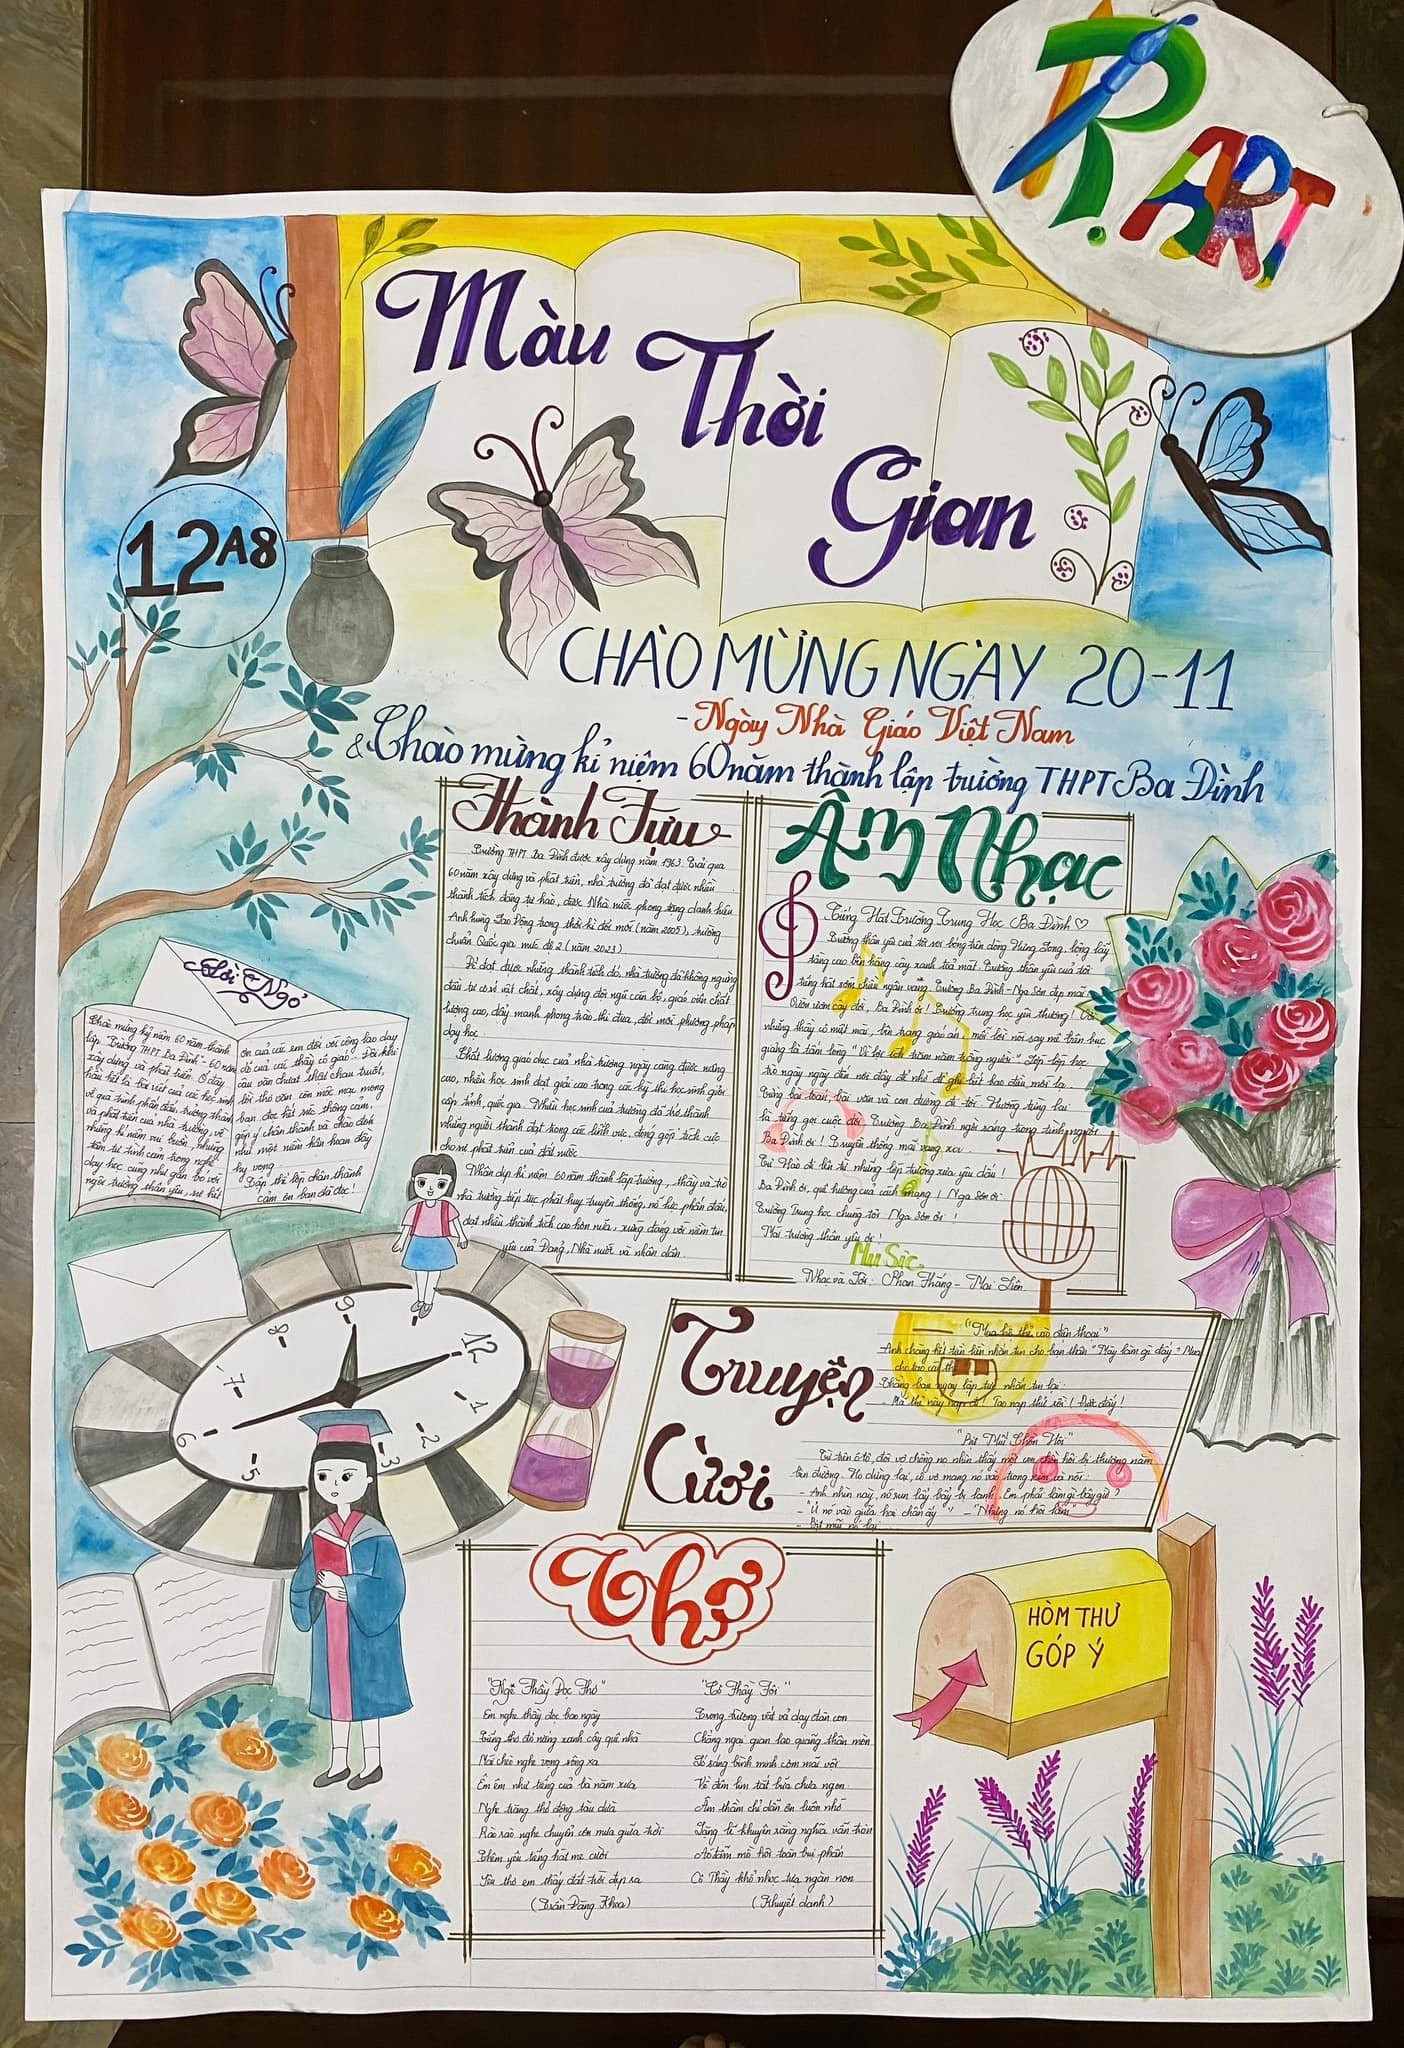 R.ART
Màu
Thời
Gian
12A8
CHÀO MỪNG NGÀY 20-11
- Ngày Nhà Giáo Việt Nam
& Chào mừng kỉ niệm 60 năm thành lập trường THPT Ba Đình
Lời Ngỏ
Chào mừng kỷ niệm 60 năm thành
lập "Trường THPT Ba Đình" - 60 năm
xây dựng và phát triển. Ở đây
hầu hết là bài viết của các học sinh
về quá trình phấn đấu, trưởng thành
và phát triển của nhà trường, về
những kỉ niệm vui buồn, những
tâm tư tình cảm trong nghề
dạy học cũng như gắn bó với
ngôi trường thân yêu, sự biết
ơn của các em đối với công lao dạy
dỗ của các thầy cô giáo. Đôi khi
câu văn chưa thật chau chuốt,
lời thơ vẫn còn mộc mạc, mong
bạn đọc hết sức thông cảm,
góp ý chân thành và chào đón
như một niềm hân hoan đầy
hy vọng.
Tập thể lớp chân thành
cảm ơn bạn đã đọc!
Thành Tựu
Trường THPT Ba Đình được xây dựng năm 1963. Trải qua
60 năm xây dựng và phát triển, nhà trường đã đạt được nhiều
thành tích đáng tự hào, được Nhà nước phong tặng danh hiệu
Anh hùng Lao Động trong thời kì đổi mới (năm 2005), trường
chuẩn Quốc gia mức độ 2 (năm 2023)
Để đạt được những thành tích đó, nhà trường đã không ngừng
đầu tư cơ sở vật chất, xây dựng đội ngũ cán bộ, giáo viên chất
lượng cao, đẩy mạnh phong trào thi đua, đổi mới phương pháp
dạy học.
Chất lượng giáo dục của nhà trường ngày càng được nâng
cao, nhiều học sinh đạt giải cao trong các kỳ thi học sinh giỏi
cấp tỉnh, quốc gia. Nhiều học sinh của trường đã trở thành
những người thành đạt trong các lĩnh vực, đóng góp tích cực
cho sự phát triển của đất nước
Nhân dịp kỉ niệm 60 năm thành lập trường, thầy và trò
nhà trường tiếp tục phát huy truyền thống, nỗ lực phấn đấu,
đạt nhiều thành tích cao hơn nữa, xứng đáng với niềm tin
yêu của Đảng, Nhà nước và nhân dân.
Âm Nhạc
Tiếng Hát Trường Trung Học Ba Đình ♡
Trường thân yêu của tôi soi bóng trên dòng Hưng Long, lồng lẫy
tầng cao bên hàng cây xanh tỏa mát. Trường thân yêu của tôi
tiếng hát sớm chiều ngân vang. Trường Ba Đình - Nga Sơn đẹp mãi
Vườn ươm cây đời, Ba Đình ơi! Trường trung học yêu thương! Có
những thầy cô miệt mài, bên trang giáo án, mỗi lời nói say mê trên bục
giảng là tấm lòng "Vì lợi ích trăm năm trồng người". Lớp lớp học
trò ngày ngày đến nơi đây để nhớ để ghi biết bao điều mới lạ.
Từng bài toán, bài văn và con đường đi tới. Hướng tương lai
là tiếng gọi cuộc đời. Trường Ba Đình ngời sáng trong tình người
Ba Đình ơi! Truyền thống mãi vang xa.
Tự Hào đi lên từ những lớp trường xưa yêu dấu!
Ba Đình ơi, quê hương của cách mạng! Nga Sơn ơi
Trường Trung học chúng tôi Nga Sơn ơi!
Mái trường thân yêu ơi!
Music
Nhạc và Lời: Phan Thắng - Mai Liên
Truyện
Cười
"Mua hộ thẻ cào điện thoại"
Anh chàng hết tiền liền nhắn tin cho bạn thân "Mày làm gì đấy? Mua
cho tao cái thẻ
Thằng bạn ngay lập tức nhắn tin lại:
- Mã thẻ này nạp đi! Tao nạp thử rồi! Được đấy!
"Bịt Mũi Chồn Hôi"
Từ trên ô tô, đôi vợ chồng nọ nhìn thấy một con chồn hôi bị thương nằm
bên đường. Họ dừng lại, cô vợ mang nó vào trong xe và nói:
- Anh nhìn này, nó run lẩy bẩy bị lạnh. Em phải làm gì bây giờ?
- "Ủ nó vào giữa hai chân ấy" - "Nhưng nó hôi lắm"
- Bịt mũi nó lại
Thơ
"Nghe Thầy Đọc Thơ"
Em nghe thầy đọc bao ngày
Tiếng thơ đỏ nắng xanh cây quê nhà
Mái chèo nghe vọng sông xa
Êm êm như tiếng của bà năm xưa
Nghe trăng thở động tàu dừa
Rào rào nghe chuyển cơn mưa giữa trời
Thêm yêu tiếng hát mẹ cười
Yêu thơ em thấy đất trời đẹp ra
(Trần Đăng Khoa)
"Cô Thầy Tôi"
Trong trường vất vả dạy đàn con
Chẳng ngại gian lao quãng thân mòn
Từ sáng bình minh còn mãi vội
Về đêm lịm tắt bữa chưa ngon
Âm thầm chỉ dẫn ơn luôn nhớ
Lặng lẽ khuyên răng nghĩa vẫn tròn
Áo đẫm mồ hôi toàn bụi phấn
Cô Thầy khổ nhọc tựa ngàn non
(Khuyết danh)
HÒM THƯ
GÓP Ý
9
8
7
6
5
3
2
1
12